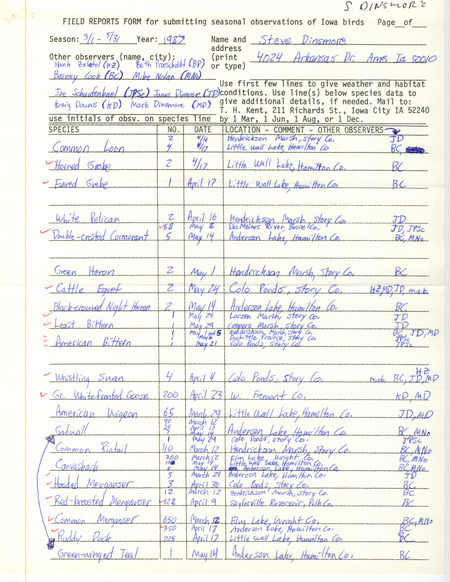 S DINSMORE
FIELD REPORTS FORM for submitting seasonal observations of Iowa birds Page__of__
Season: 3/1 - 5/31 Year: 1983 Name and Steve Dinsmore
address
Other observers (name, city): (print 4024 Arkansas Dr. Ames Ia 50010
Hank Zaletel (HZ) Beth Proescholdt (BP) or type)
Barney Cook (BC) Mike Nolan (MN)
Use first few lines to give weather and habitat
Joe Schaufenbuel (JPSc) James Dinsmore (JD) conditions. Use line(s) below species data to
give additional details, if needed. Mail to:
Kraig Downs (KD) Mark Dinsmore (MD) T. H. Kent, 211 Richards St., Iowa City IA 52240
use initials of obsv. on species line by 1 Mar, 1 Jun, 1 Aug, or 1 Dec.
SPECIES NO. DATE LOCATION - COMMENT - OTHER OBSERVERS
2 4/14 Hendrickson Marsh, Story Co. JD
Common Loon 4 4/17 Little Wall Lake, Hamilton Co. BC
Horned Grebe 2 4/17 Little Wall Lake, Hamilton Co. BC
Eared Grebe 1 April 17 Little Wall Lake, Hamilton Co. BC
White Pelican 2 April 16 Hendrickson Marsh, Story Co. JD
68 May 8 Des Moines River, Boone Co. JD, JPSc
Double-crested Cormorant 5 May 14 Anderson Lake, Hamilton Co. BC, MNo
Green Heron 2 May 1 Hendrickson Marsh, Story Co. BC
Cattle Egret 2 May 24 Colo Ponds, Story Co. HZ, MD, JD, m.ob.
Black-crowned Night Heron 2 May 14 Anderson Lake, Hamilton Co. BC
1 May 24 Larson Marsh, Story Co. JD
Least Bittern 1 May 29 Coopers Marsh, Story Co. JD
Hendrickson Marsh, Story Co. BC, JD, MD
American Bittern 1 Doolittle Prairie, Story Co. JPSc
1 May 21 Colo Ponds, Story Co. JPSc
HZ
Whistling Swan 4 April 4 Colo Ponds, Story Co. m.ob. BC, JD, MD
Gr. White-fronted Goose 200 April 23 W. Fremont Co. KD, MD
American Wigeon 65 March 29 Little Wall Lake, Hamilton Co. JD, MD
March 12
April 17
Gadwall May 14 Anderson Lake, Hamilton Co. BC, MNo
1 May 29 Colo Ponds, Story Co. JPSc
Common Pintail 110 March 12 Hendrickson Marsh, Story Co. BC, MNo
300 March 12 Elm Lake, Wright Co. BC, MNo
Canvasback Little Wall Lake, Hamilton Co. BC
May 14 Anderson Lake, Hamilton Co. BC, MNo
March 29 Anderson Lake, Hamilton Co. JD
Hooded Merganser 3 April 30 Colo Ponds, Story Co. BC
12 March 12 Hendrickson Marsh, Story Co. BC
Red-breasted Merganser 128 April 9 Saylorville Reservoir, Polk Co. BC
Common Merganser 650 March 12 Elm Lake, Wright Co. BC, MNo
April 17 Anderson Lake, Hamilton Co. BC
Ruddy Duck 225 April 17 Little Wall Lake, Hamilton Co. BC
Green-winged Teal 1 May 14 Anderson Lake, Hamilton Co. BC